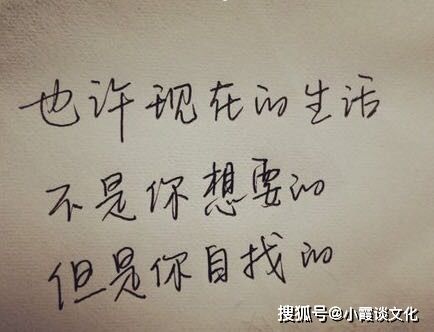 也许现在的生活
不是你想要的
但是你自找的
搜狐号@小霞谈文化